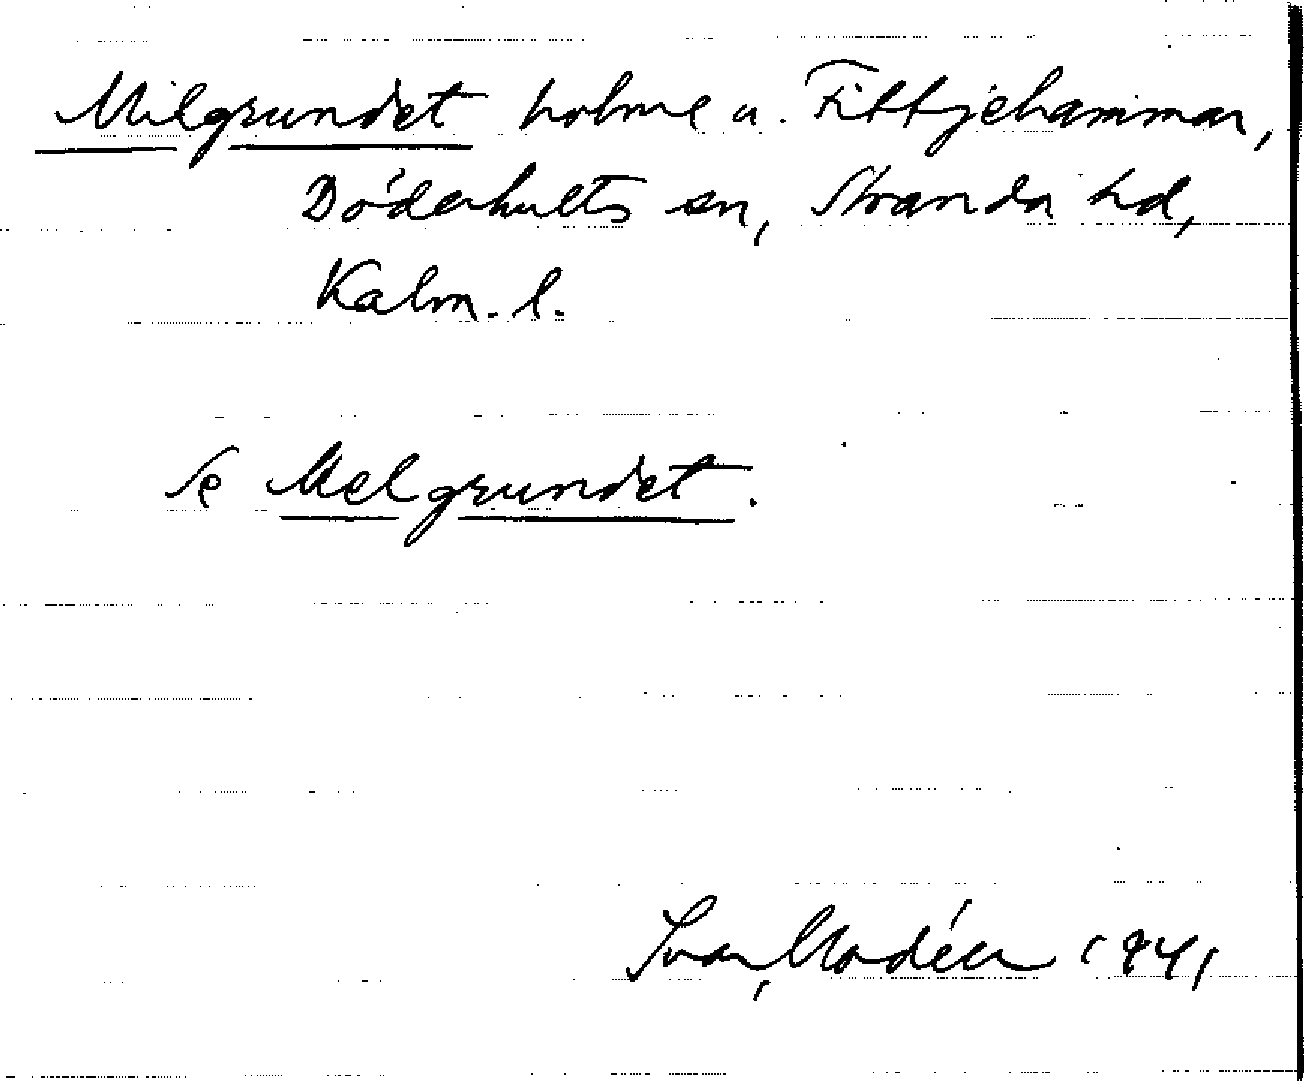 Milgrundet holme u. Fittjehammar,
Döderhults sn, Stranda hd,
Kalm. l.
Se Melgrundet.
Ivar Modéer 1941